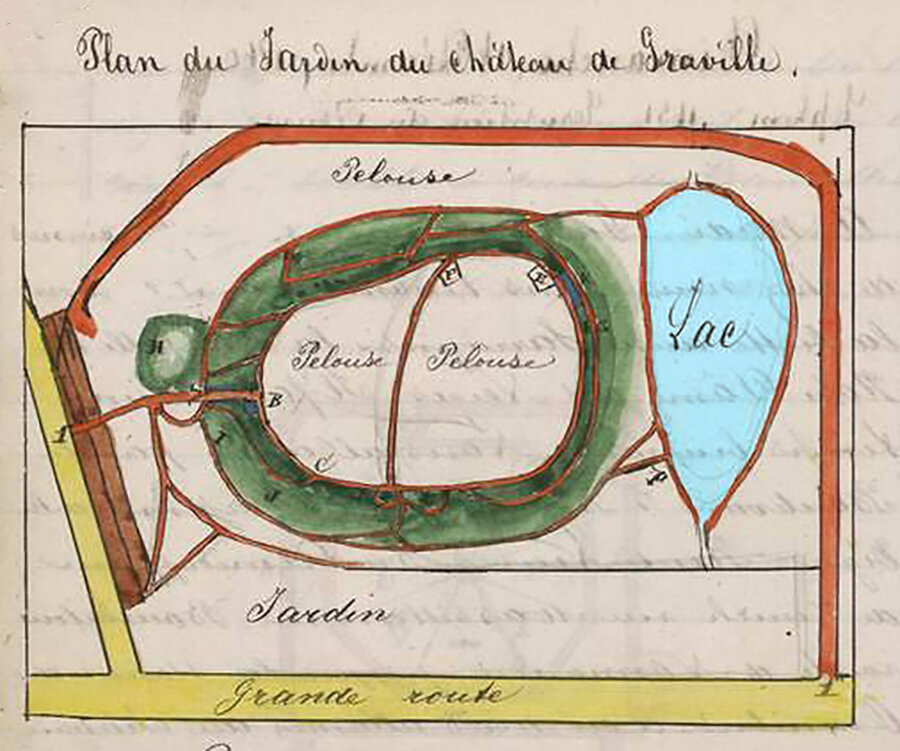 Plan du Jardin du château de Graville.
Pelouse
H
Pelouse
Pelouse
Lac
B
1
C
P
Jardin
Grande route
1